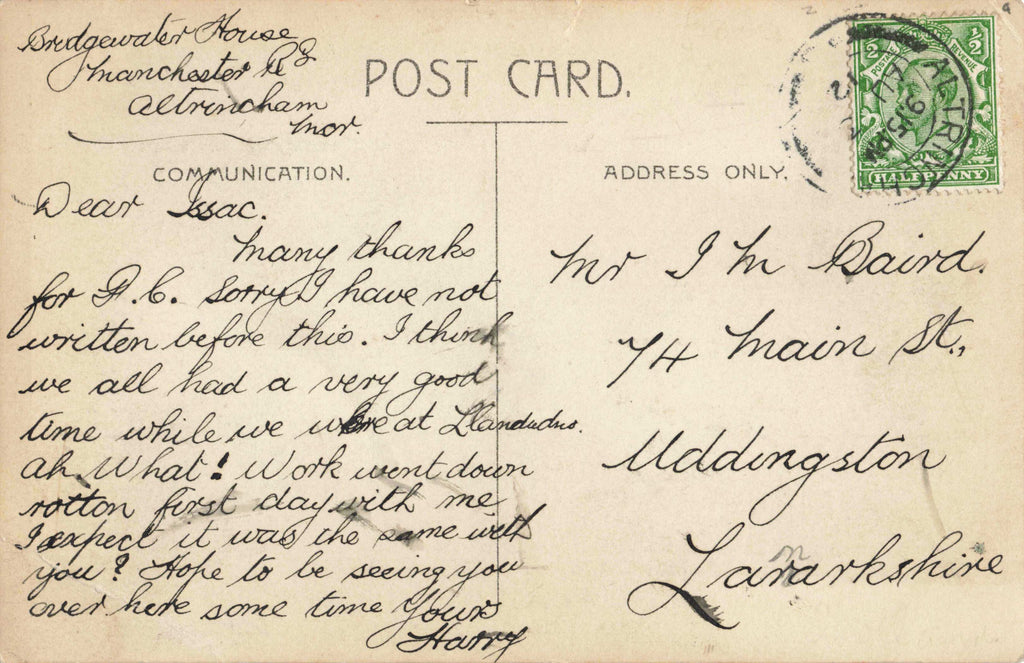 Bridgewater House
Manchester Rd
Altrincham
Mor.
POST CARD.
COMMUNICATION.
ADDRESS ONLY.
POSTAGE
REVENUE
1/2
1/2
HALFPENNY
ALTRINCH
9 15 PM
12
Dear Issac.
Many thanks
for P.C. Sorry I have not
written before this. I think
we all had a very good
time while we were at Llandudno.
Ah What! Work went down
rotton first day with me
I expect it was the same with
you? Hope to be seeing you
over here some time Yours
Harry
Mr I M Baird.
74 Main St.,
Uddingston
Lanarkshire